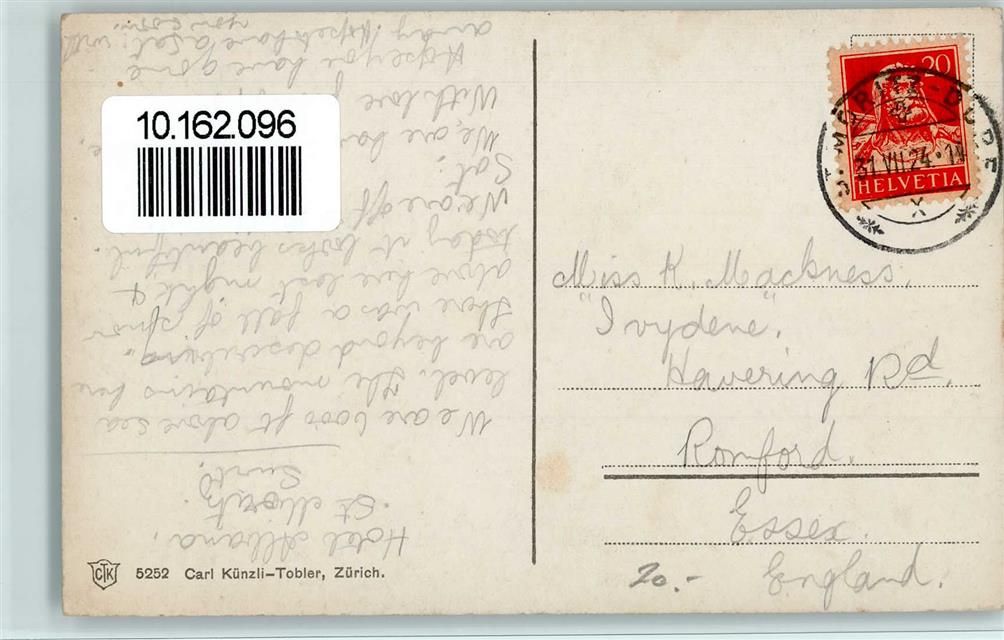 10.162.096
Hotel Albana,
St Moritz.
We are 6000 ft above sea
level. The mountains here
are beyond describing.
There was a fall of snow
above here last night &
today it looks beautiful.
We are off
Sat.
We are
With love
Hope you have gone
away. Hope to have a
20
HELVETIA
ST. MORITZ-DORF
31.VII.24.
X
Miss K. Mackness.
"Ivydene",
Havering Rd.
Romford.
Essex.
England.
20.-
CTK
5252 Carl Künzli-Tobler, Zürich.